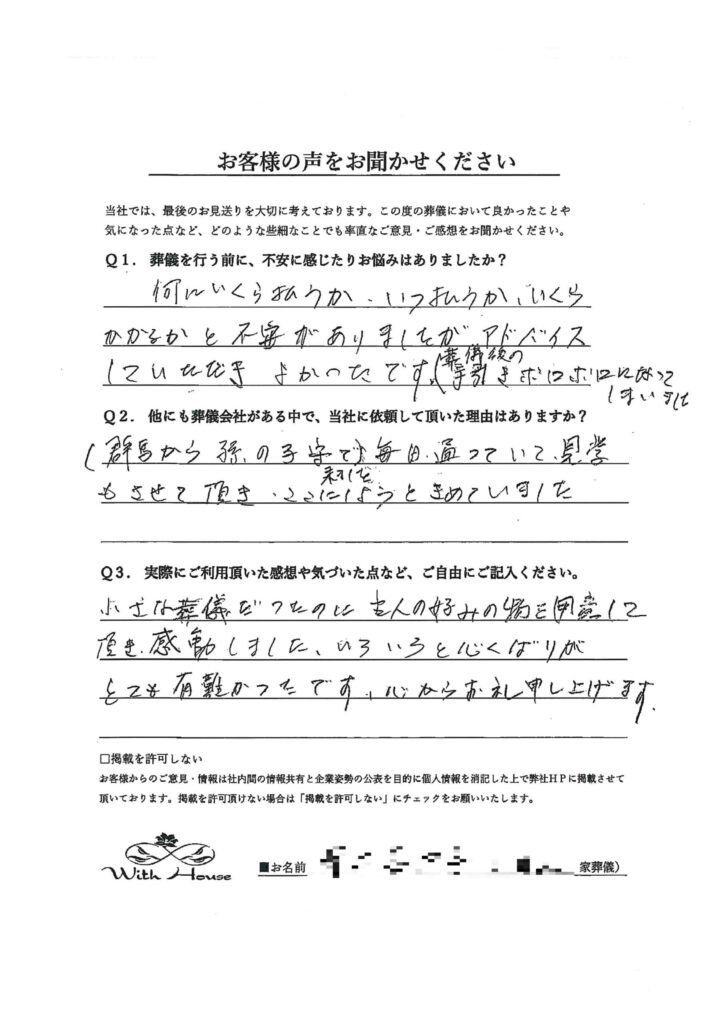 お客様の声をお聞かせください
当社では、最後のお見送りを大切に考えております。この度の葬儀において良かったことや
気になった点など、どのような些細なことでも率直なご意見・ご感想をお聞かせください。
Q1. 葬儀を行う前に、不安に感じたりお悩みはありましたか?
何にいくら払うか、いつ払うか、いくら
かかるかと不安がありましたがアドバイス
していただき よかったです。(葬儀後の
手引きボロボロになって
しまいました
Q2. 他にも葬儀会社がある中で、当社に依頼して頂いた理由はありますか?
(群馬から孫の子守で)毎日通っていて、見学
もさせて頂き、ここにしようときめていました
Q3. 実際にご利用頂いた感想や気づいた点など、ご自由にご記入ください。
小さな葬儀だったのに主人の好みの物を用意して
頂き、感動しました、いろいろと心くばりが
とても有難かったです。心からお礼申し上げます。
□掲載を許可しない
お客様からのご意見・情報は社内間の情報共有と企業姿勢の公表を目的に個人情報を消記した上で弊社HPに掲載させて
頂いております。掲載を許可頂けない場合は「掲載を許可しない」にチェックをお願いいたします。
With House
■お名前
家葬儀)